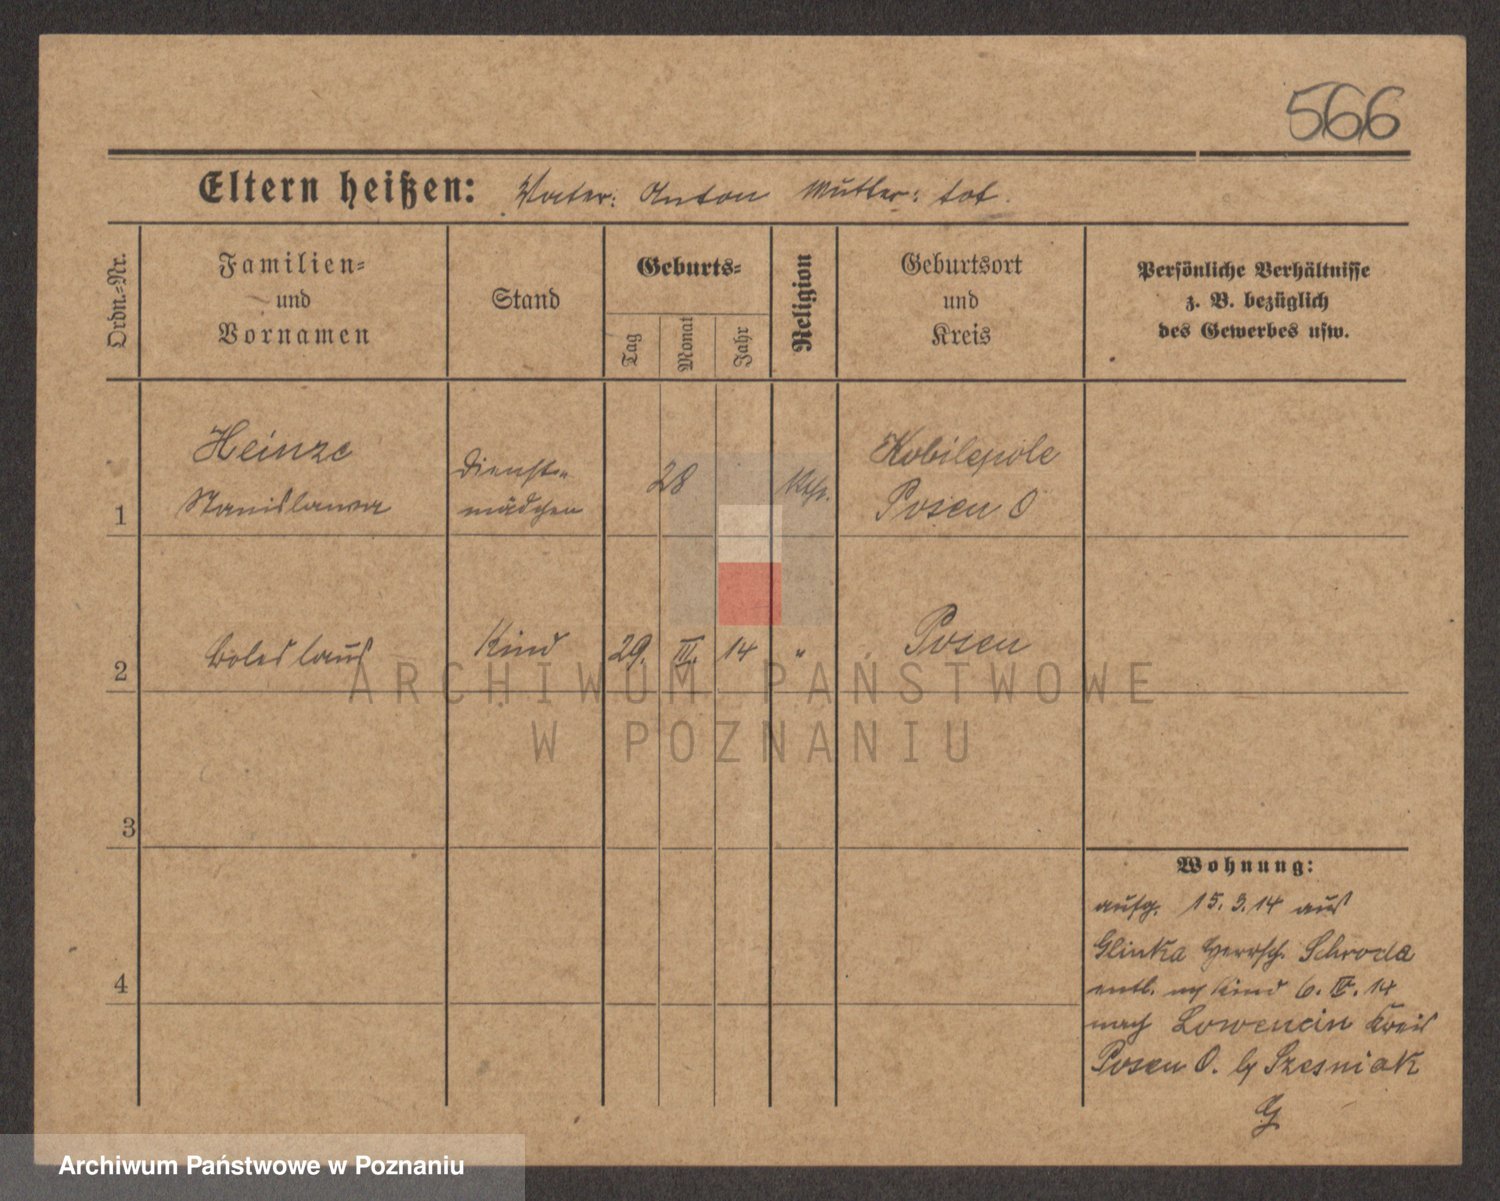 566
Eltern heißen: Vater: Anton Mutter: tot.
Ordn.-Nr.
Familien-
und
Vornamen
Stand
Geburts-
Tag
Monat
Jahr
Religion
Geburtsort
und
Kreis
Persönliche Verhältnisse
z. B. bezüglich
des Gewerbes usw.
1
Heinze
Stanislawa
Dienst-
mädchen
28
kth.
Kobilepole
Posen O
2
Boleslaus
Kind
29. III. 14
"
Posen
3
4
Wohnung:
aufg. 15.3.14 aus
Glinka Herrsch. Schroda
entl. m Kind 6. IV. 14
nach Lowencin Kreis
Posen O. b/ Szesniak
G
ARCHIWUM PAŃSTWOWE
W POZNANIU
Archiwum Państwowe w Poznaniu